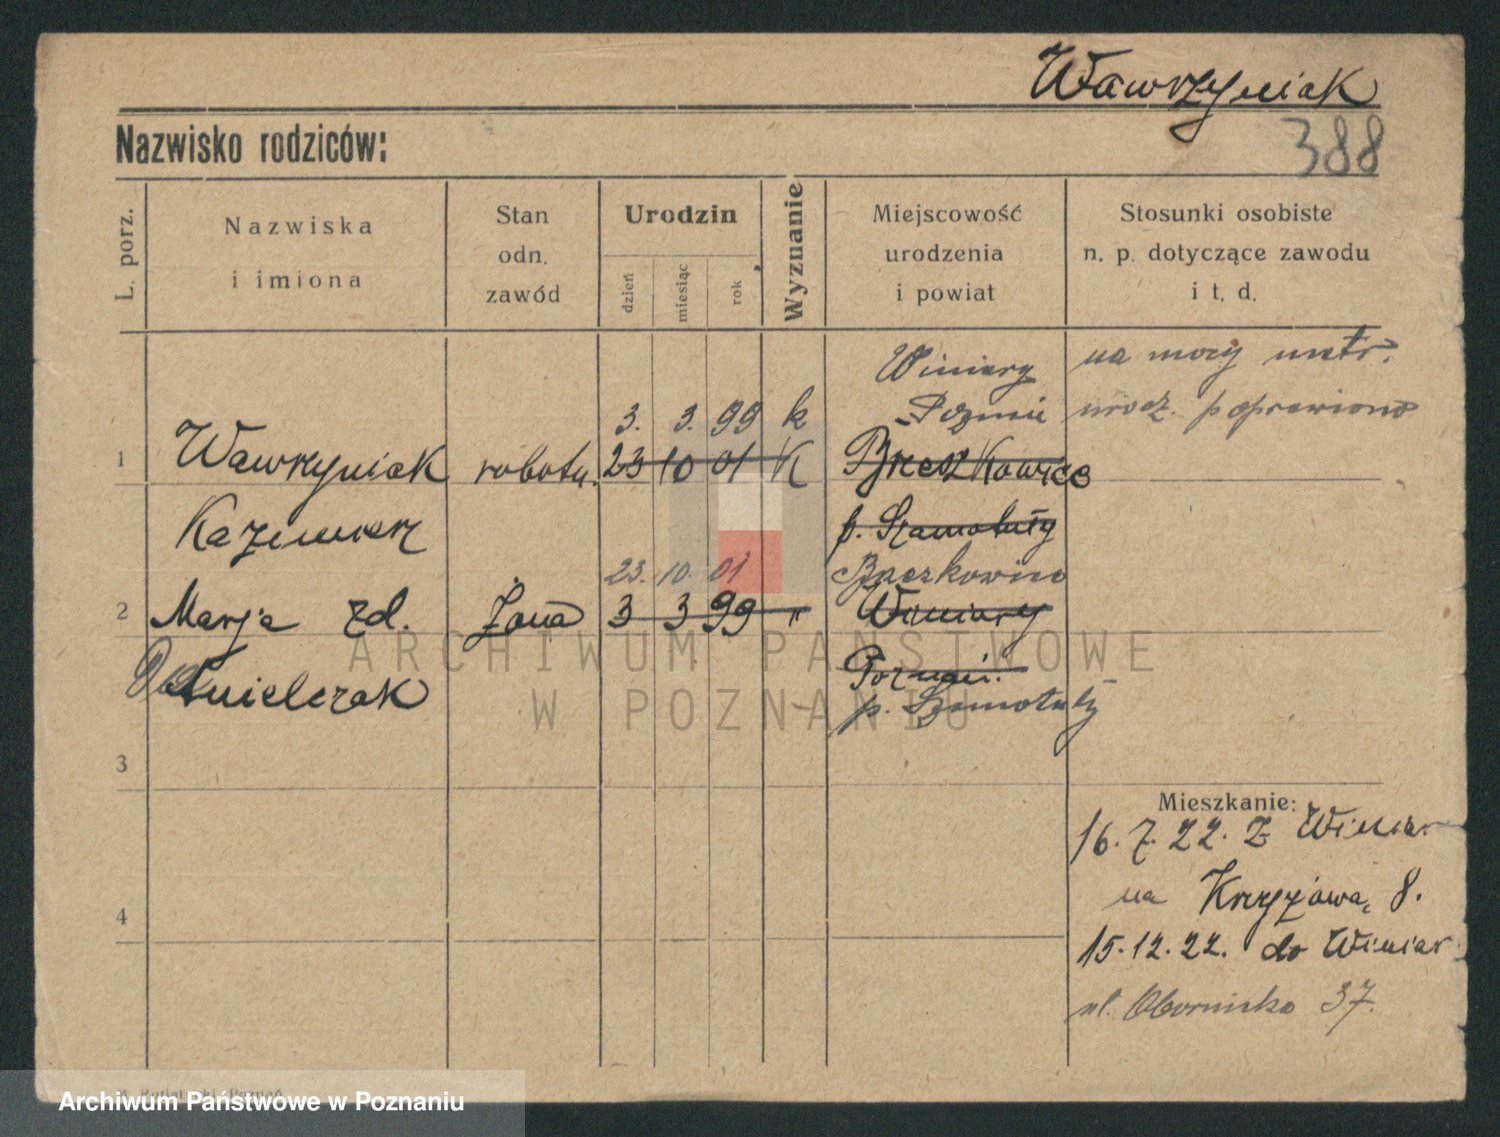 Wawrzyniak
Nazwisko rodziców:
388
L. porz.
Nazwiska
i imiona
Stan
odn.
zawód
Urodzin
dzień
miesiąc
rok
Wyznanie
Miejscowość
urodzenia
i powiat
Stosunki osobiste
n. p. dotyczące zawodu
i t. d.
Winiary na mocy metr.
3. 3. 99 k urodz. poprawiono
1 Wawrzyniak robotn. 23 10 01 K
Kazimierz p. Szamotuły
23. 10. 01
2 Marja zd. Żona 3 3 99 " Winiary
Poznań.
p. Szamotuły
3
Mieszkanie:
16. 7. 22. Z Winiar
na Krzyżową 8.
4
15. 12. 22. do Winiar
ul. Obornicka 37.
ARCHIWUM PAŃSTWOWE
W POZNANIU
Archiwum Państwowe w Poznaniu